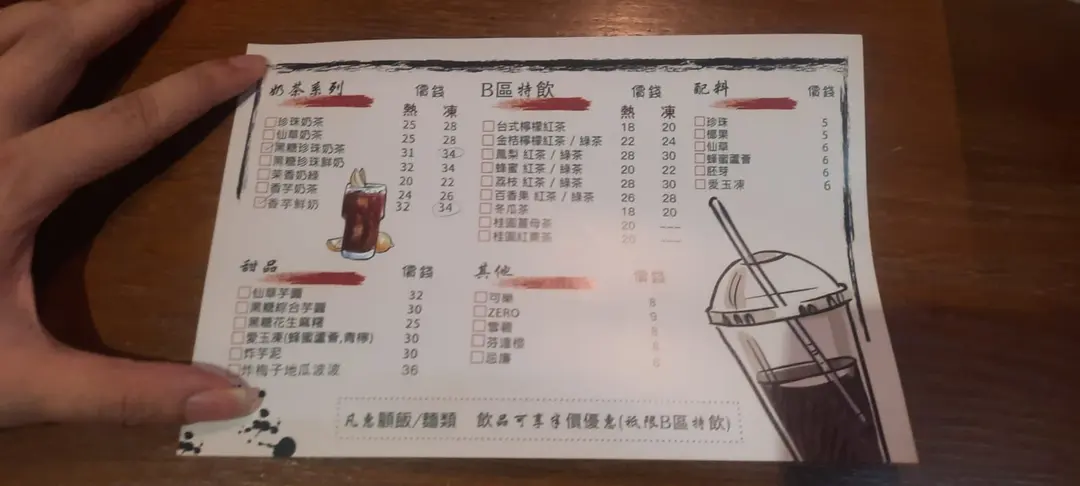 奶茶系列 價錢
熱 凍
珍珠奶茶 25 28
仙草奶茶 25 28
黑糖珍珠奶茶 31 34
黑糖珍珠鮮奶 32 34
茉香奶綠 20 22
香芋奶茶 24 26
香芋鮮奶 32 34
B區特飲 價錢
熱 凍
台式檸檬紅茶 18 20
金桔檸檬紅茶 / 綠茶 22 24
鳳梨 紅茶 / 綠茶 28 30
蜂蜜 紅茶 / 綠茶 20 22
荔枝 紅茶 / 綠茶 28 30
百香果 紅茶 / 綠茶 26 28
冬瓜茶 18 20
桂圓薑母茶 20 ---
桂圓紅棗茶 20 ---
配料 價錢
珍珠 5
椰果 5
仙草 6
蜂蜜蘆薈 6
胚芽 6
愛玉凍 6
甜品 價錢
仙草芋圓 32
黑糖綜合芋圓 30
黑糖花生麻糬 25
愛玉凍(蜂蜜蘆薈,青檸) 30
炸芋泥 30
炸梅子地瓜波波 36
其他 價錢
可樂 8
ZERO 9
雪碧 8
芬達橙 8
忌廉 8
凡惠顧飯/麵類 飲品可享半價優惠(祇限B區特飲)